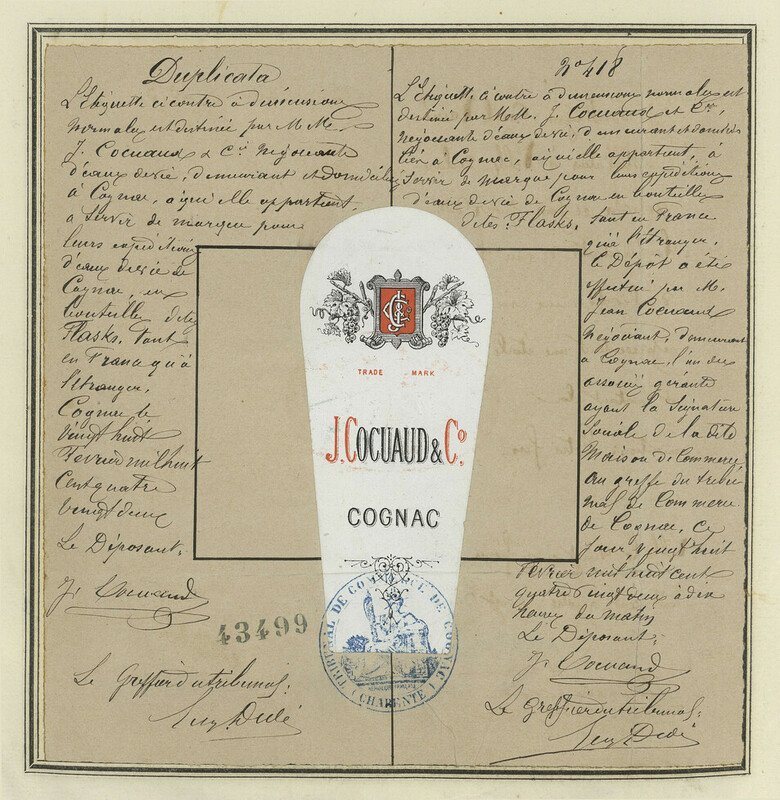 Duplicata
L'Etiquette ci contre à dimensions
normales est destinée par M M.
J. Cocuaud & Cie Négociants
d'eaux de vie, demeurant et domiciliés
à Cognac, à qui elle appartient,
a Servir de marque pour
leurs expéditions
d'eaux de vie de
Cognac, en
bouteilles dites
Flasks, tant
en France qu'à
l'étranger.
Cognac le
vingt huit
Fevrier mil huit
cent quatre
vingt deux
Le Déposant.
J. Cocuaud
43499
Le Greffier du tribunal.
No 418
L'Etiquette ci contre à dimensions normales est
destinée par M.M. J. Cocuaud et Cie,
négociants d'eaux de vie, demeurant et domici
liés à Cognac, à qui elle appartient, à
Servir de marque pour leurs expéditions
d'eaux de vie de Cognac en bouteilles
dites: Flasks, tant en France
qu'à l'étranger.
Le Dépôt a été
effectué par M.
Jean Cocuaud
Négociant, demeurant
à Cognac, l'un des
associés gérants
ayant la Signature
Sociale de la dite
Maison de Commerce
au greffe du tribu
nal de Commerce
de Cognac, ce
jour, vingt huit
Fevrier mil huit cent
quatre vingt deux à dix
heures du matin
Le Déposant.
J. Cocuaud
Le Greffier du tribunal.
TRADE MARK
J. COCUAUD & Co.
COGNAC
TRIBUNAL DE COMMERCE DE COGNAC
(CHARENTE)